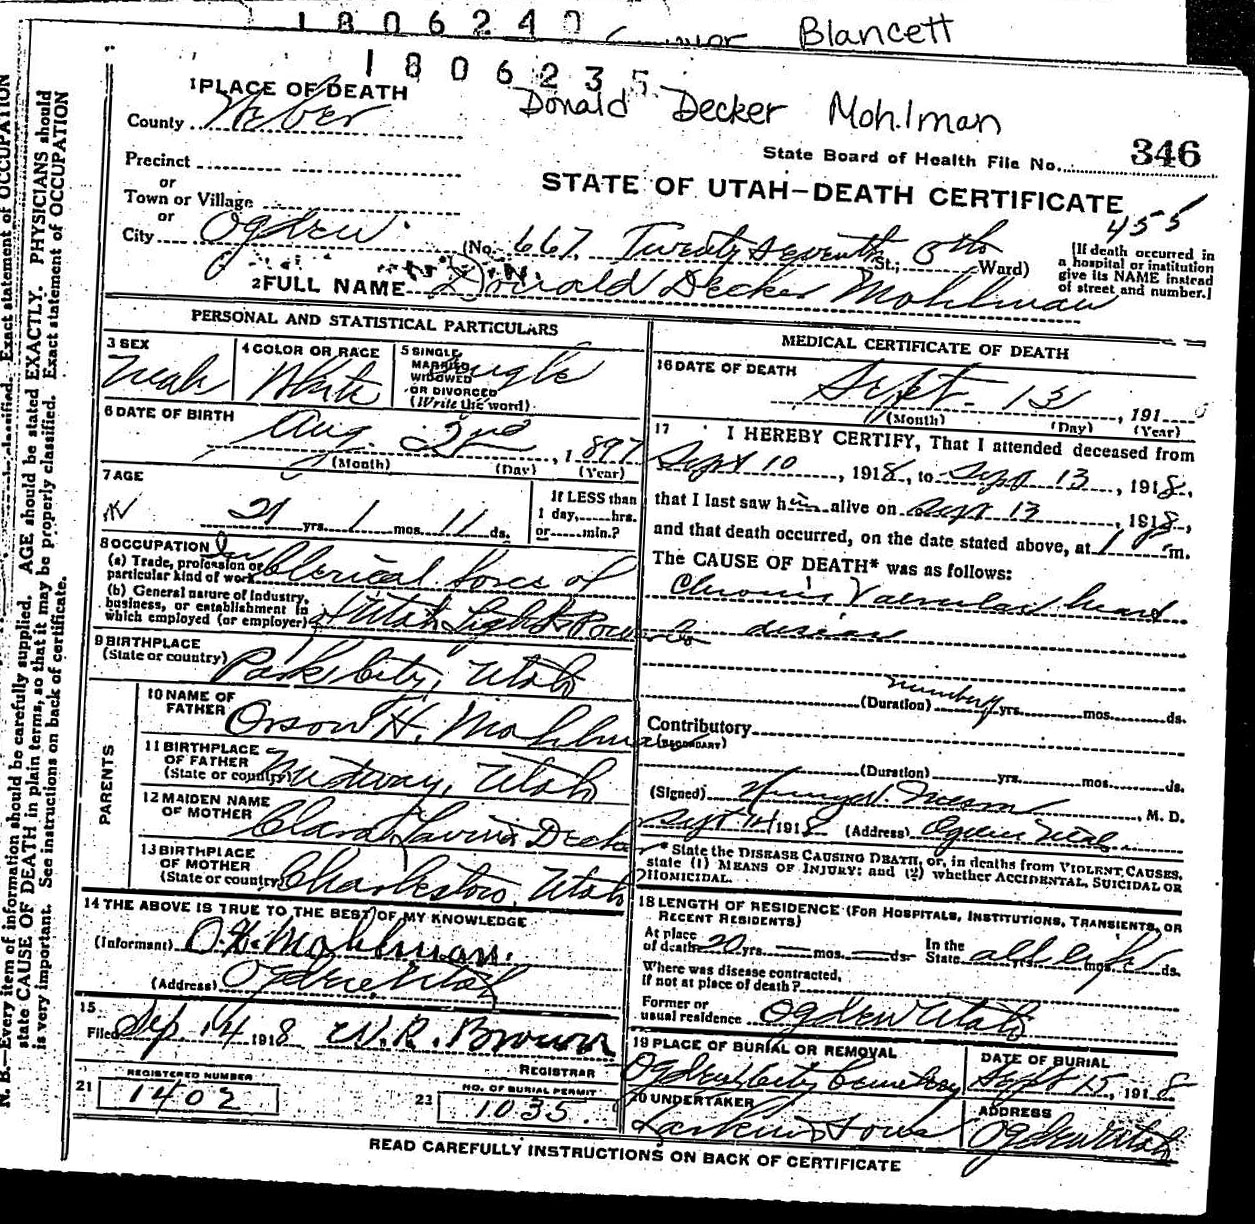 1806240
Blancett
1806235
Donald Decker Mohlman
1 PLACE OF DEATH
County Weber
State Board of Health File No. 346
Precinct
or
STATE OF UTAH—DEATH CERTIFICATE
Town or Village
455
or
City Ogden (No. 667. Twenty Seventh St.; 5th Ward)
(If death occurred in a hospital or institution give its NAME instead of street and number.)
2 FULL NAME Donald Decker Mohlman
PERSONAL AND STATISTICAL PARTICULARS
3 SEX Male
4 COLOR OR RACE White
5 SINGLE, MARRIED, WIDOWED OR DIVORCED (Write the word) Single
6 DATE OF BIRTH
Aug. 2nd, 1897
(Month) (Day) (Year)
7 AGE
21 yrs. 1 mos. 11 ds.
If LESS than 1 day, hrs. or min.?
8 OCCUPATION
(a) Trade, profession or particular kind of work In Clerical force of
(b) General nature of Industry, business, or establishment in which employed (or employer) Utah Light & Power Co
9 BIRTHPLACE
(State or country) Park City, Utah
PARENTS
10 NAME OF FATHER Orson H. Mohlman
11 BIRTHPLACE OF FATHER (State or country) Midway, Utah
12 MAIDEN NAME OF MOTHER Clara Lavina Decker
13 BIRTHPLACE OF MOTHER (State or country) Charleston, Utah
14 THE ABOVE IS TRUE TO THE BEST OF MY KNOWLEDGE
(Informant) O. H. Mohlman.
(Address) Ogden Utah
15
Filed Sep 14 1918 W. R. Brown
REGISTRAR
REGISTERED NUMBER
21 1402
NO. OF BURIAL PERMIT
23 1035
MEDICAL CERTIFICATE OF DEATH
16 DATE OF DEATH
Sept. 13, 191
(Month) (Day) (Year)
17 I HEREBY CERTIFY, That I attended deceased from
Sept 10, 1918, to Sept 13, 1918,
that I last saw him alive on Sept 13, 1918,
and that death occurred, on the date stated above, at 1 m.
The CAUSE OF DEATH* was as follows:
Chronic Valvular heart
disease
(Duration) yrs. mos. ds.
Contributory
(SECONDARY)
(Duration) yrs. mos. ds.
(Signed) M. D.
Sept 14 1918 (Address) Ogden Utah
* State the DISEASE CAUSING DEATH, or, in deaths from VIOLENT CAUSES, state (1) MEANS OF INJURY; and (2) whether ACCIDENTAL, SUICIDAL OR HOMICIDAL.
18 LENGTH OF RESIDENCE (FOR HOSPITALS, INSTITUTIONS, TRANSIENTS, OR RECENT RESIDENTS)
At place of death 20 yrs. mos. ds. In the State all life yrs. mos. ds.
Where was disease contracted, if not at place of death?
Former or usual residence Ogden Utah
19 PLACE OF BURIAL OR REMOVAL
Ogden City Cemetery
DATE OF BURIAL
Sept 15, 1918
20 UNDERTAKER
Larkin & Sons
ADDRESS
Ogden Utah
READ CAREFULLY INSTRUCTIONS ON BACK OF CERTIFICATE
N. B.—Every item of information should be carefully supplied. AGE should be stated EXACTLY. PHYSICIANS should
state CAUSE OF DEATH in plain terms, so that it may be properly classified. Exact statement of OCCUPATION
is very important. See instructions on back of certificate.